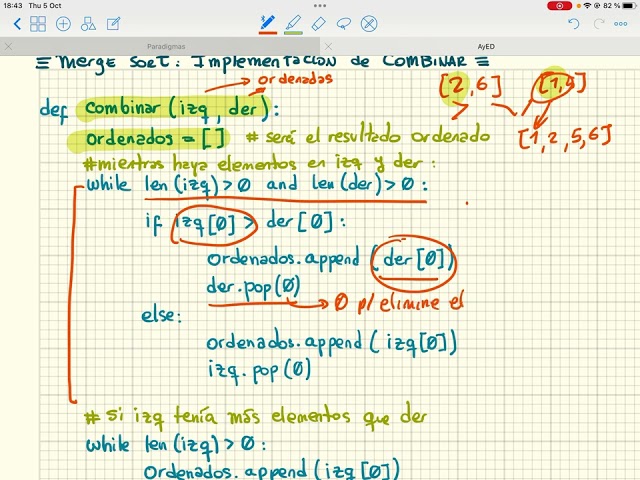 18:43 Thu 5 Oct
82 %
Paradigmas
AyED
≡ Merge Sort: Implementación de COMBINAR ≡
ordenadas
[2,6] [1,5]
def combinar (izq, der):
ordenados = [] # será el resultado ordenado
[1, 2, 5, 6]
#mientras haya elementos en izq y der:
while len(izq)>0 and len(der)>0:
if izq[0] > der[0]:
ordenados.append (der[0])
der.pop(0) → 0 p/ elimine el
else:
ordenados.append (izq[0])
izq.pop(0)
# Si izq tenía más elementos que der
while len(izq)>0:
Ordenados.append (izq[0])